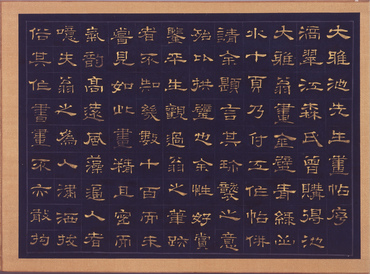 大雅池先生畫帖序
滴翠江森氏曾購得池
大雅翁畫金璧青綠山
水十頁乃付工作帖併
請余題言其珍襲之意
殆比拱璧也余性好賞
鑒平生觀過翁之筆跡
者不知幾數十百而未
嘗見如此畫精且密而
氣韵高遠風藻逼人者
噫夫翁之為人瀟洒拔
俗其作書畫不亦敢拘